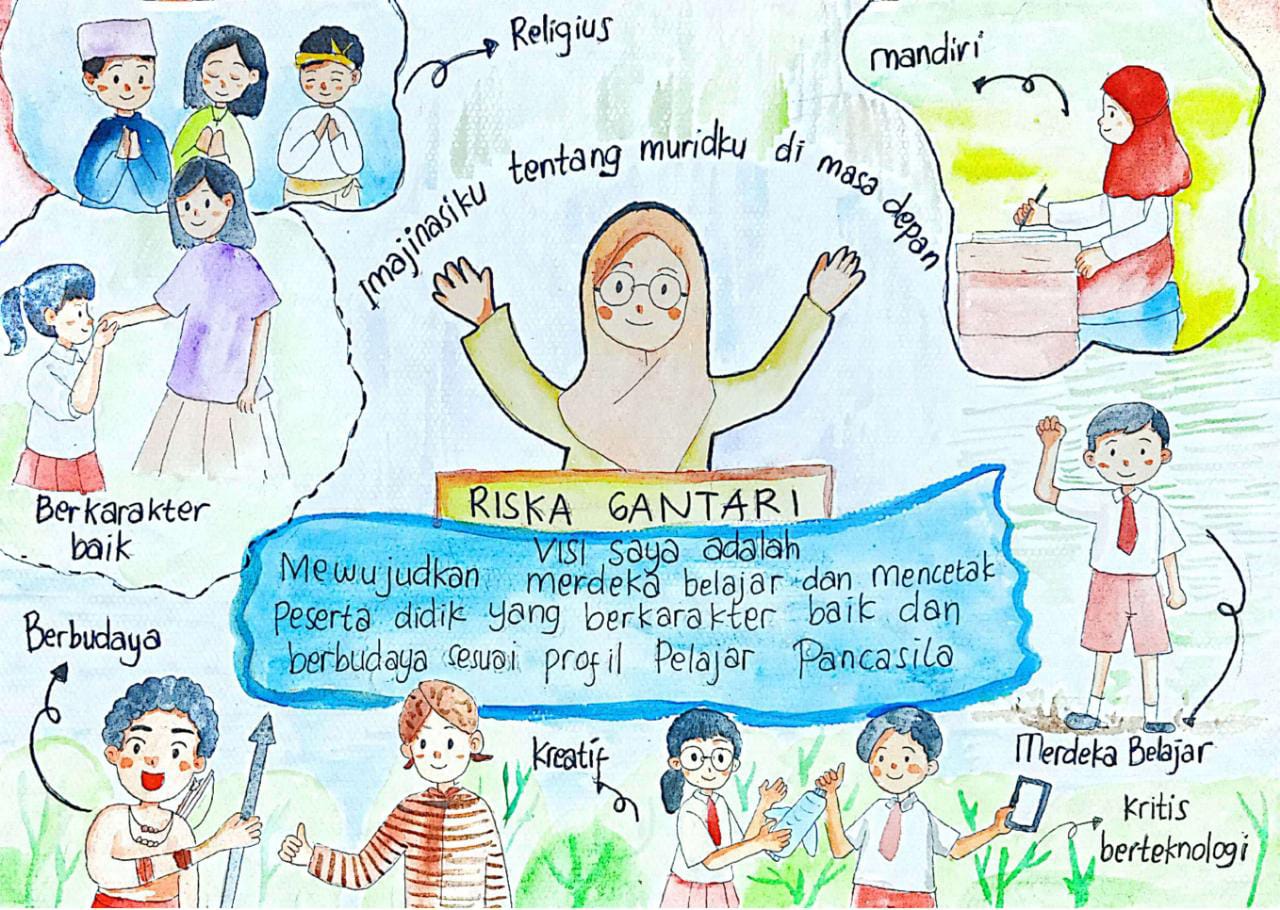 Religius
mandiri
Imajinasiku tentang muridku di masa depan
Berkarakter
baik
RISKA GANTARI
VISI saya adalah
Mewujudkan merdeka belajar dan mencetak
Peserta didik yang berkarakter baik dan
berbudaya sesuai profil Pelajar Pancasila
Berbudaya
Kreatif
Merdeka Belajar
Kritis
berteknologi